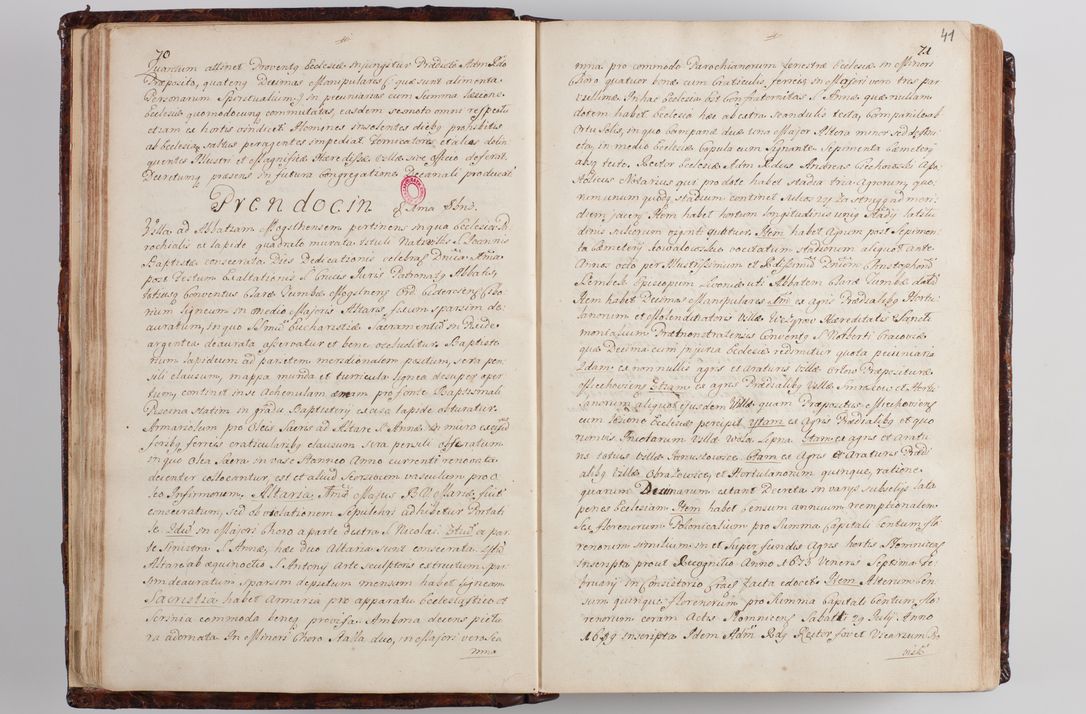 70
Quantum attinet Proventus Ecclesiæ injungitur Prædicto Adm Rdo
Præposito, quatenus Decimas Manipulares quæ sunt alimenta
Personarum Spiritualium in pecuniarias cum summa læsione
Ecclesiæ quomodocunq commutatas, easdem semoto omni respectu
etiam ex hortis vindicet Homines insolentes diebus prohibitis
ab Ecclesia saltus peragentes impediat fornicatores et alios delin
quentes Illustri et Magnificæ Hæredissæ Villæ sive officio deferat.
Decretumq præsens in futura Congregatione Decanali producat
Prendocin
Villa ad Abbatiam Mogilnensem pertinens in qua Ecclesia Pa
rochialis ex lapide quadrato murata tituli Nativitatis S. Joannis
Baptistæ consecrata Dies Dedicationis celebratur Dnica
post Festum Exaltationis S. Crucis Juris Patronatus Abbatis,
totiusq Conventus Claræ Tumbæ Ord. Cisterciens Cibo
rium ligneum in medio Majoris Altaris situm sparsim de
auratum, in quo Ssmum Eucharistiæ Sacramentum in Pixide
argentea deaurata asservatur et bene occluditur. Baptiste
rium lapideum ad parietem meridionalem positum, sera pen
sili clausum, mappa munda et turricula lignea desuper oper
tum, continet in se Ahenulam æream pro fonte Baptismali
Piscina statim in gradu Baptisterij excisa lapide obturatur.
Armariolum pro Oleis Sacris ad Altare S. Annæ in muro excisum
foribus ferreis craticularibus clausum sera pensili obseratum
in quo Olea Sacra in vase stanneo Anno currenti renovata
decenter collocantur, est et aliud seorsivum vasculum pro O
leo Infirmorum. Altaria Majus B. V. Mariæ, fuit
consecratum, sed ob violationem sepulchri adhibetur Portati
le. 2dum in Majori Choro a parte dextra S. Nicolai. 3tium a par
te sinistra S. Annæ, hæc duo Altaria sunt consecrata. 4tum
Altare ab æquinoctio S. Antonij Arte Sculptoris extructum spar
sim deauratum sparsim depictum mensam habet ligneam
Sacristia habet Armaria pro apparatu Ecclesiastico et
Scrinia commoda bene provisa. Ambona decens pictu
ra adornata. In Minori Choro Stalla duo, in Majori vero
nina
71
41
nina pro commodo Parochianorum fenestræ Ecclesiæ in Minori
Choro quatuor bonæ cum Craticulis ferreis, in Majori vero tres par
vullinæ. In hac Ecclesia est Confraternitas S. Annæ quæ nullam
dotem habet Ecclesia hæc ab extra scandulis tecta, Campanile ab
Ortu Solis, in quo Campanæ duæ una Major Altera minor sed
in medio Ecclesiæ Cupula cum Signante. Sepimenta Cemeterij
absq tecto. Rector Ecclesiæ Adm Rdus Andreas Cichoński Apo
stolicus Notarius qui pro dote habet stadia tria Agrorum, quo
rum unumquodq stadium continet
diem jacens Item habet hortum longitudinis unius Stadij latitu
dinis sulcorum viginti quatuor. Item habet Agrum post sepimen
ta Cæmeterij Kowalowskie vocitatum stadionem aliquot ante
Annos octo per Illustrissimum et Rdissimum Dnum Christophorum
Zembek Episcopum Livoniæ uti Abbatem Claræ Tumbæ datum
Item habet Decimas Manipulares Imo ex agris Prædialibus Hortu
lanorum et Molenditatoris Villæ Węzyrow Hæreditatis Sancti
monialium Præmonstratensis Conventus S. Norberti Cracoviæ
quæ Decima cum injuria Ecclesiæ redimitur quota pecuniaria
Idem ex nonnullis agris et araturis Villæ Orlow Præpositurae
Miechoviens Item ex agris Prædialibus Villæ Smiałow et Hortu
lanorum aliquot ejusdem Villæ quam Præpositus Miechoviens
cum læsione Ecclesiæ percipit. Item ex Agris Prædialibus et quo
rumvis Incolarum Villæ Wola Lipna. Item ex agris et Aratu
ris totius Villæ Januszowice. Item ex Agris et Araturis Prædi
alibus Villæ Obrazowice, et Hortulanorum quinque, ratione
quarum Decimarum extant Decreta in varijs subsellijs lata
penes Ecclesiam. Item habet Censum annuum reemptionalem
sex florenorum Polonicalium pro Summa Capitali Centum flo
renorum similium in et super fundis Agris hortis Słomnicens
inscripta prout Recognitio Anno 1675 Veneris Septima Fe
bruarij in Consistorio Crac. facta edocet. Item Alterum Cen
sum quinque florenorum pro Summa Capitali Centum flo
renorum coram Actis Słomnicens Sabatho 29 Julij Anno
1699 inscripta Idem Adm Rdus Rector fovet Vicarium